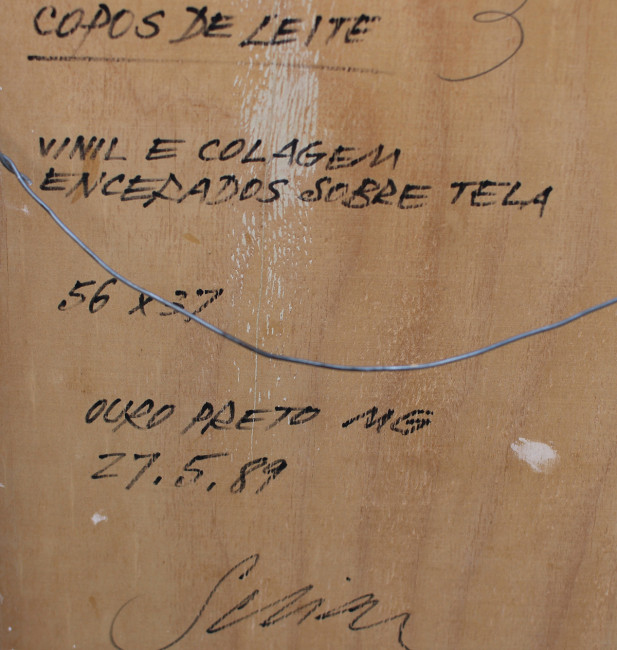 COPOS DE LEITE
VINIL E COLAGEM
ENCERADOS SOBRE TELA
56 x 37
OURO PRETO MG
27.5.89